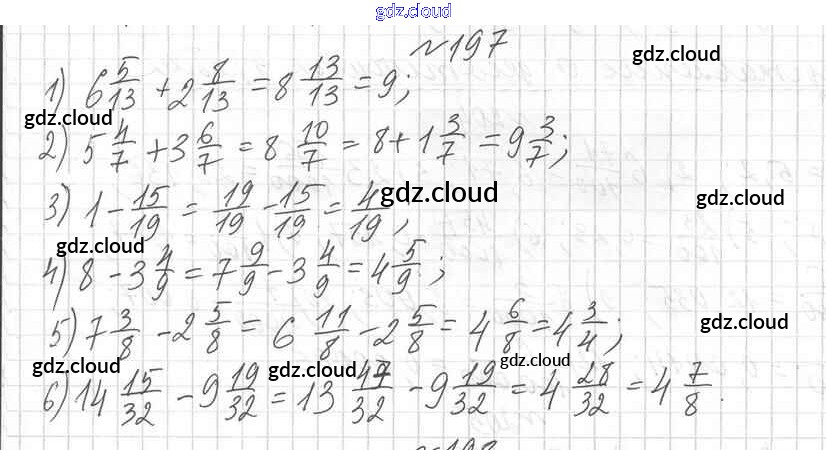 gdz.cloud
№197
gdz.cloud
1) 6 5/13 + 2 8/13 = 8 13/13 = 9;
gdz.cloud
2) 5 4/7 + 3 6/7 = 8 10/7 = 8 + 1 3/7 = 9 3/7;
3) 1 - 15/19 = 19/19 - 15/19 = 4/19,
gdz.cloud
gdz.cloud
gdz.cloud
4) 8 - 3 4/9 = 7 9/9 - 3 4/9 = 4 5/9;
5) 7 3/8 - 2 5/8 = 6 11/8 - 2 5/8 = 4 6/8 = 4 3/4;
gdz.cloud
gdz.cloud
gdz.cloud
gdz.cloud
6) 14 15/32 - 9 19/32 = 13 47/32 - 9 19/32 = 4 28/32 = 4 7/8.